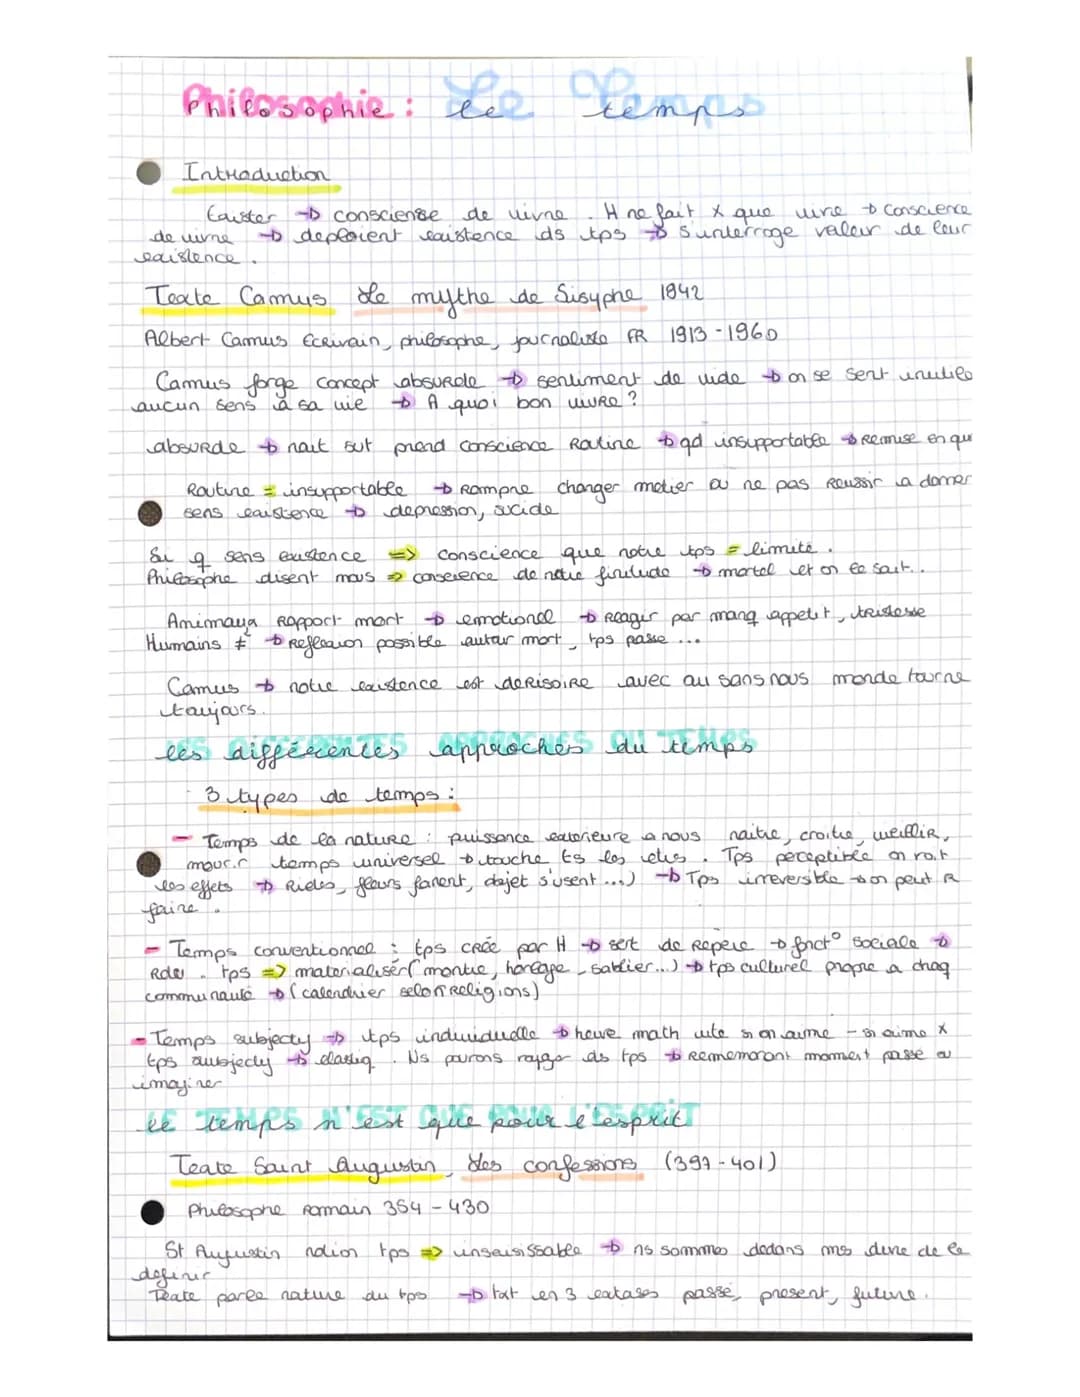 Philosophie : Le Temps
Introduction
Exister → conscience de vivre. H ne fait x que vivre → conscience
de vivre → deploient existence ds tps → s'interroge valeur de leur
existence.
Texte Camus Le mythe de Sisyphe 1942
Albert Camus Ecrivain, philosophe, journaliste FR 1913-1960
Camus forge concept absurde → sentiment de vide → on se sent inutile
aucun sens à sa vie → A quoi bon vivre ?
absurde → nait prend conscience Routine → qd insupportable → Remise en qu
Routine = insupportable → Rompre changer metier ou ne pas Reussir a donner
sens existence → depression, suicide
Si q sens existence => conscience que notre tps = limité.
Philosophe disent => conscience de notre finitude → mortel et on le sait..
Animaux Rapport mort → emotionel → Reagir par manq appetit, tristesse
Humains ≠ → Reflexion possible autour mort, tps passe ...
Camus → notre existence est deRisoire avec ou sans nous monde tourne
toujours.
les différentes approches du temps
3 types de temps :
- Temps de la nature : puissance exterieure a nous naitre, croitre, vieillir,
mourir temps universel → touche ts les etres. Tps perceptible on voit
les effets → Rides, fleurs fanent, objet s'usent ...) → Tps irreversible → on peut R
faire.
- Temps conventionnel : tps crée par H → sert de Repere → fnct° sociale →
Rdv. tps => materialiser (montre, horloge, sablier...) → tps culturel propre a chaq
communauté → (calendrier selon Religions)
- Temps subjectif → tps individuelle → heure math vite si on aime - si aime x
tps subjectif → elastiq. Ns pouvons ds tps → Rememorant moment passe ou
imaginer
LE TEMPS N'EST que pour l'esprit
Texte Saint Augustin, Les confessions (397-401)
Philosophe Romain 354-430
St Augustin notion tps => insaisissable → ns sommes dedans de le
definir
Texte parle nature du tps → en 3 extases passé, present, future.